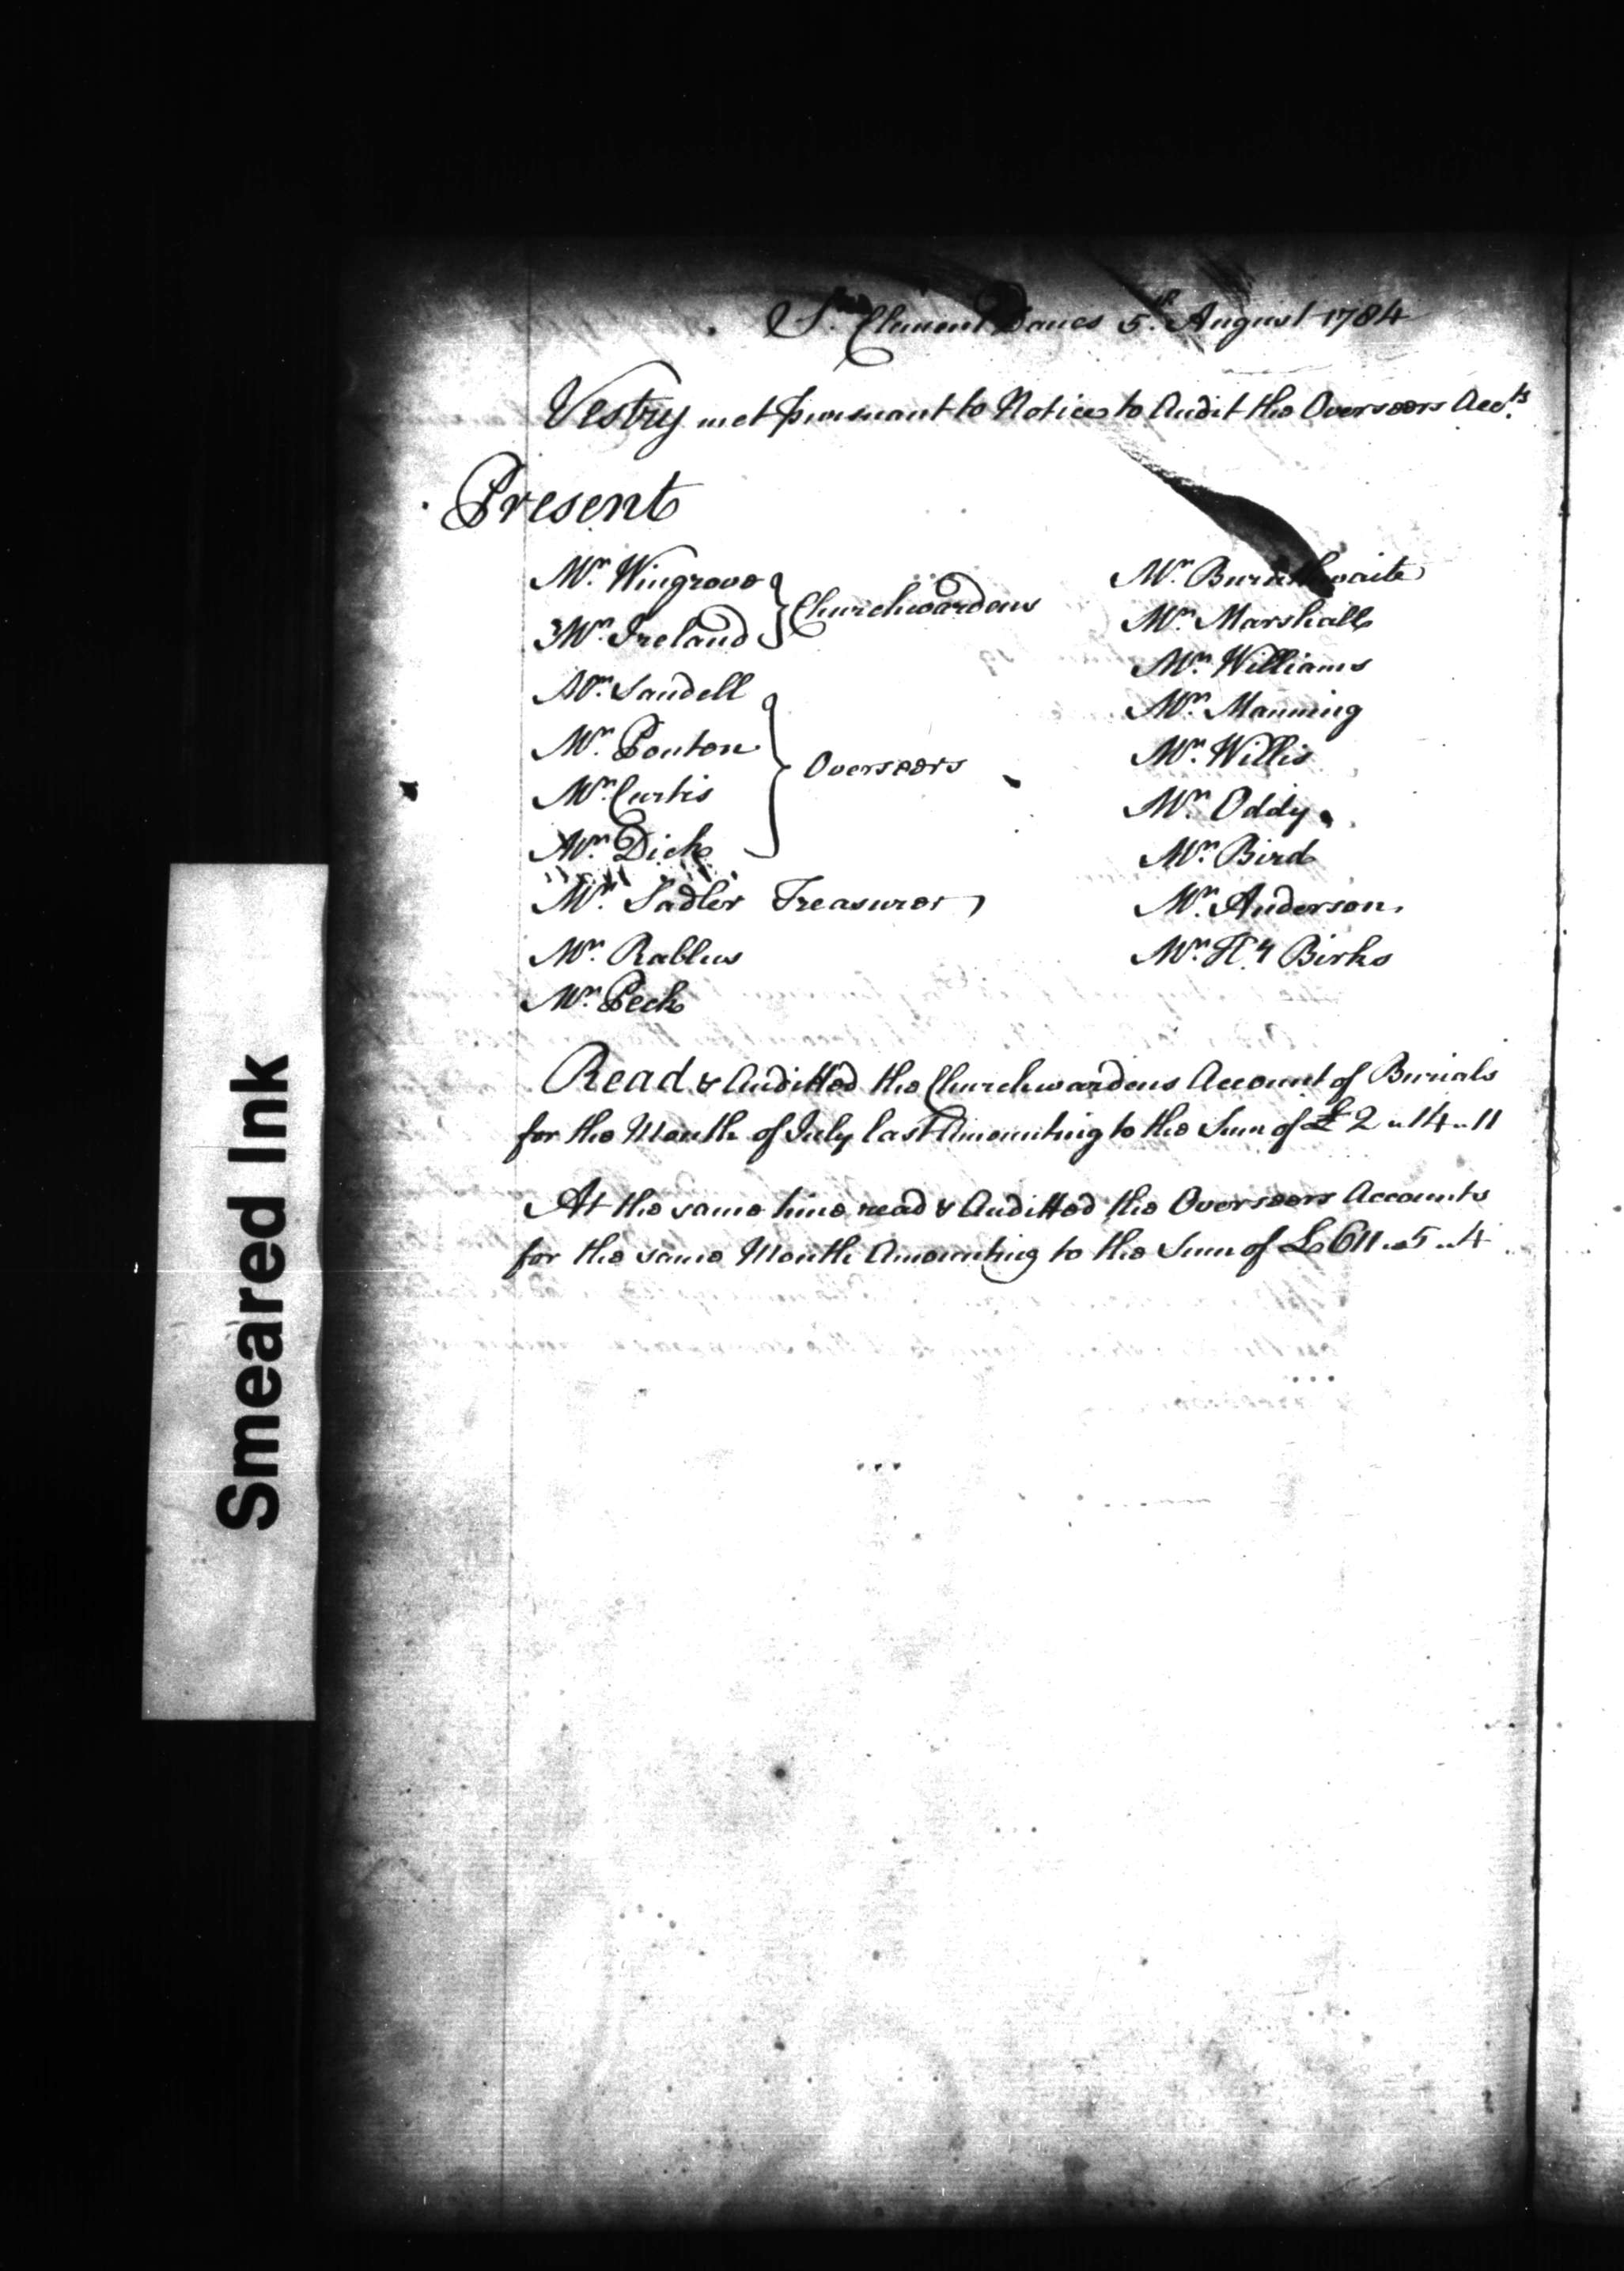 St. Clement Danes 5th. August 1784
Vestry met pursuant to Notice to Audit the Overseers Accts.
Present
Mr. Wingrove
Mr. Ireland
Churchwardens
Mr. Sandell
Mr. Ponton
Mr. Curtis
Mr. Dick
Overseers
Mr. Sadler Treasurer
Mr. Rablus
Mr. Peck
Mr. Burnthwaite
Mr. Marshall
Mr. Williams
Mr. Manning
Mr. Willis
Mr. Oddy
Mr. Bird
Mr. Anderson
Mr. Hy. Birks
Read & Auditted the Churchwardens Account of Burials
for the Month of July last Amounting to the Sum of £2 „ 14 „ 11
At the same time read & Auditted the Overseers Accounts
for the same Month Amounting to the Sum of £611 „ 5 „ 4
Smeared Ink